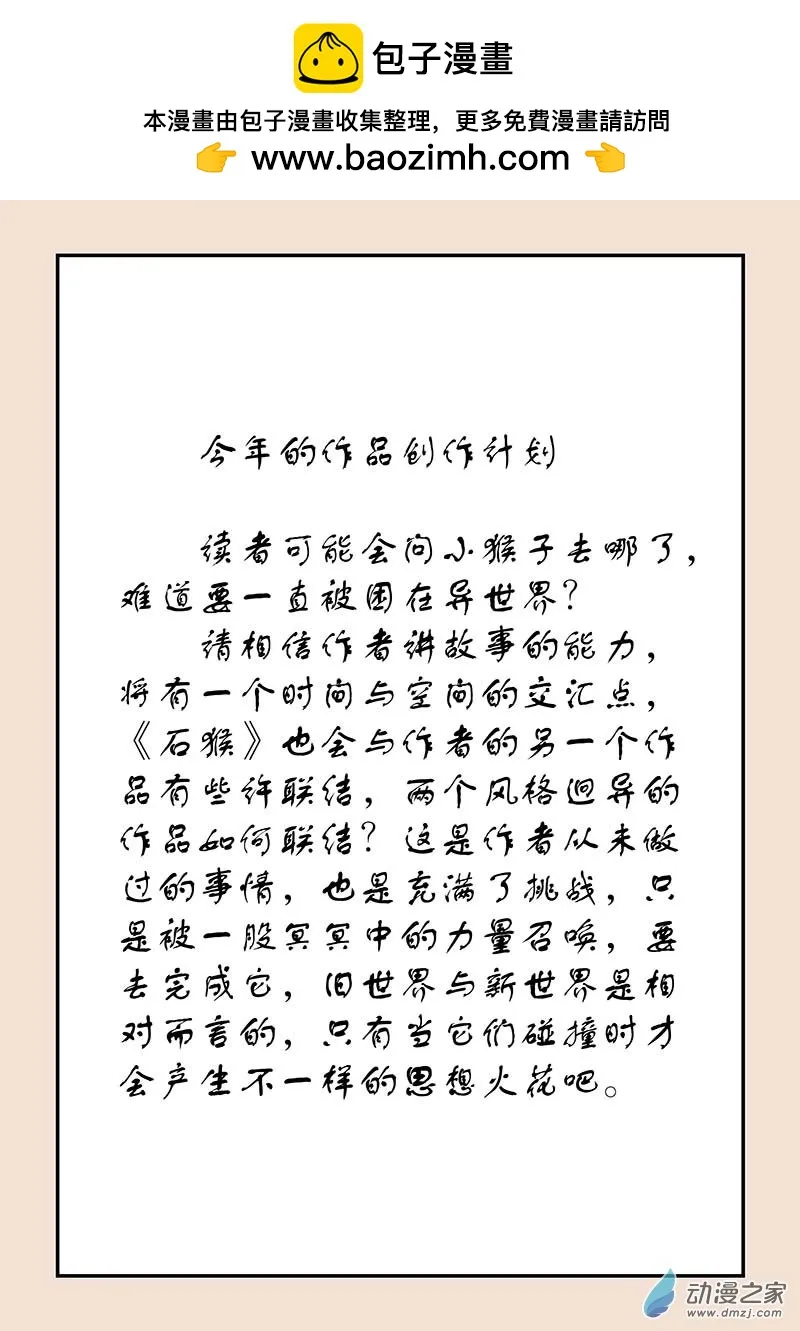 包子漫畫
本漫畫由包子漫畫收集整理，更多免費漫畫請訪問
👉 www.baozimh.com 👈
今年的作品创作计划
读者可能会问小猴子去哪了，
难道要一直被困在异世界？
请相信作者讲故事的能力，
将有一个时间与空间的交汇点，
《石猴》也会与作者的另一个作
品有些许联结，两个风格迥异的
作品如何联结？这是作者从未做
过的事情，也是充满了挑战，只
是被一股冥冥中的力量召唤，要
去完成它，旧世界与新世界是相
对而言的，只有当它们碰撞时才
会产生不一样的思想火花吧。
动漫之家
www.dmzj.com